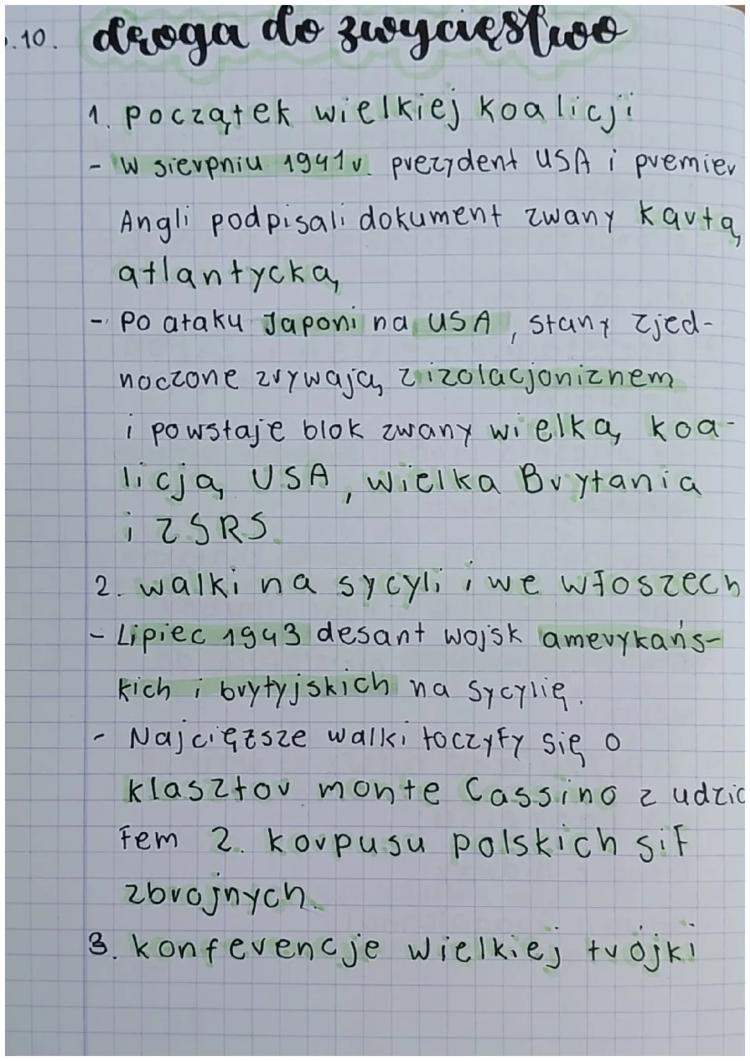 .10. droga do zwycięstwo
1. początek wielkiej koalicji
- W sierpniu 1941r. prezydent USA i premier
Angli podpisali dokument zwany kartą
atlantycką
- Po ataku Japoni na USA, stany zjed-
noczone zrywają z izolacjoniznem
i powstaje blok zwany wielką koa-
licją USA, wielka Brytania
i ZSRS.
2. walki na sycyli i we włoszech
- Lipiec 1943 desant wojsk amerykańs-
kich i brytyjskich na Sycylię.
- Najcięższe walki toczyły się o
klasztor monte Cassino z udzia
łem 2. korpusu polskich sił
zbrojnych.
3. konferencje wielkiej trójki